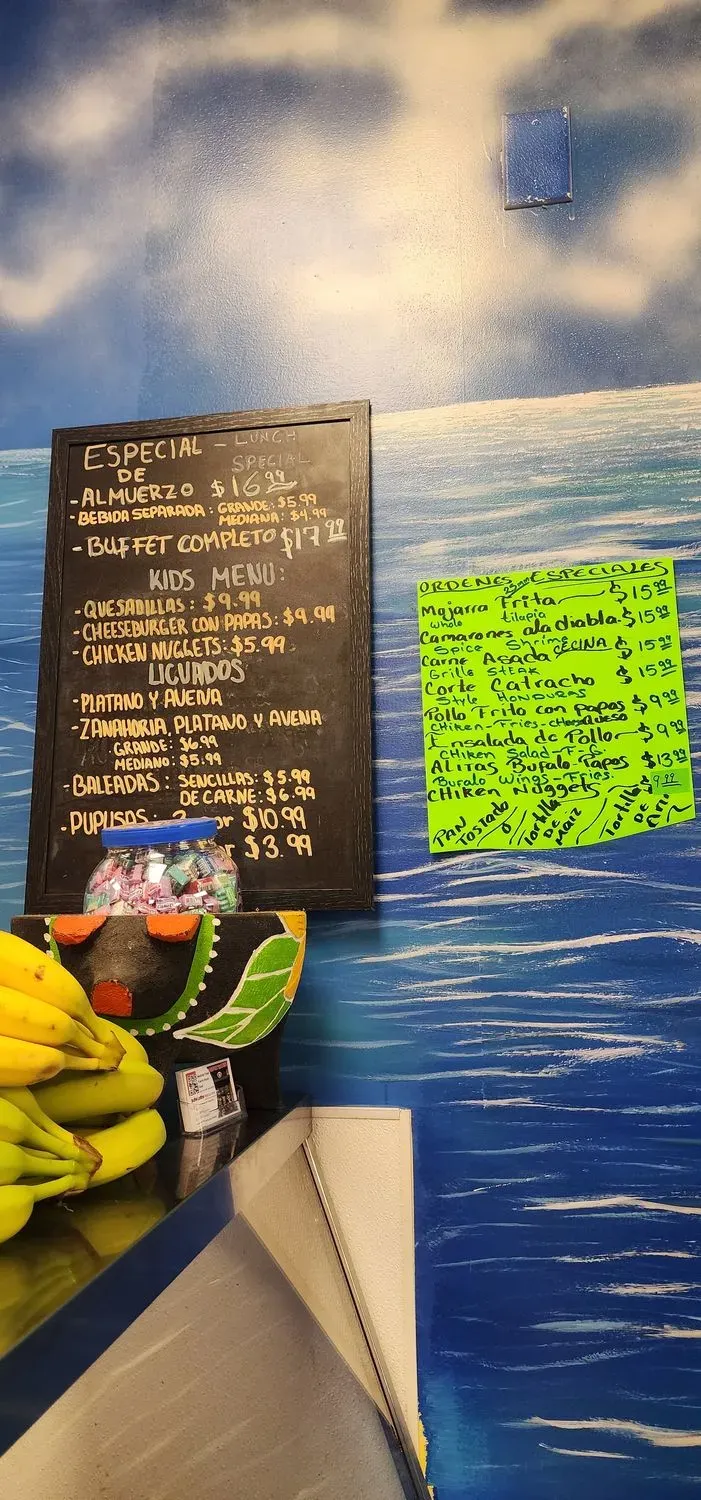 ESPECIAL - LUNCH
DE SPECIAL
-ALMUERZO $16.99
-BEBIDA SEPARADA: GRANDE: $5.99
MEDIANA: $4.99
-BUFFET COMPLETO $17.99
KIDS MENU:
-QUESADILLAS: $9.99
-CHEESEBURGER CON PAPAS: $9.99
-CHICKEN NUGGETS: $5.99
LICUADOS
-PLATANO Y AVENA
-ZANAHORIA, PLATANO Y AVENA
GRANDE: $6.99
MEDIANO: $5.99
-BALEADAS: SENCILLAS: $5.99
DE CARNE: $6.99
-PUPUSAS: $10.99
$3.99
ORDENES ESPECIALES
Mojarra Frita $15.99
Whole tilapia
Camarones ala diabla $15.99
Spice Shrimp
Carne Asada CECINA $15.99
Grille STEAK
Corte Catracho $15.99
Style HONDURAS
Pollo Frito con papas $9.99
CHiken-Fries-
Ensalada de Pollo $9.99
CHiken Salad-F-G.
ALitas Bufalo-Papas $13.99
Buralo Wings-Fries.
CHiken Nuggets 9.99
PAN TOSTADO / Tortilla DE MAiz / Tortilla DE